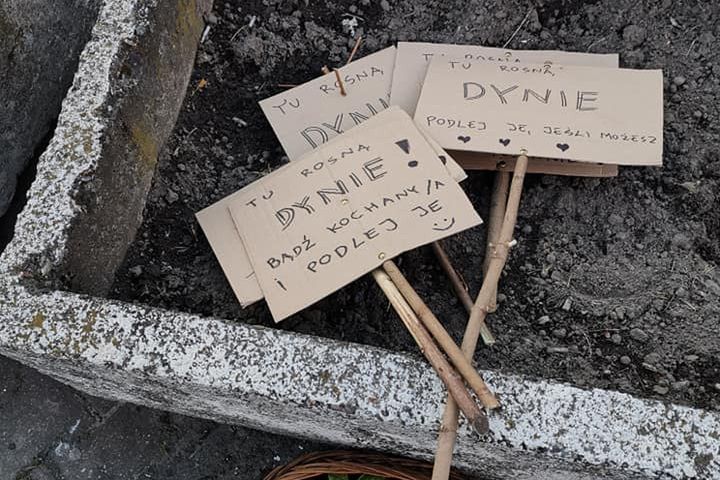 TU ROSNĄ
DYNI
TU
TU ROSNĄ
DYNIE
PODLEJ JE, JEŚLI MOŻESZ
TU ROSNĄ
DYNIE!
BĄDŹ KOCHANY/A
I PODLEJ JE